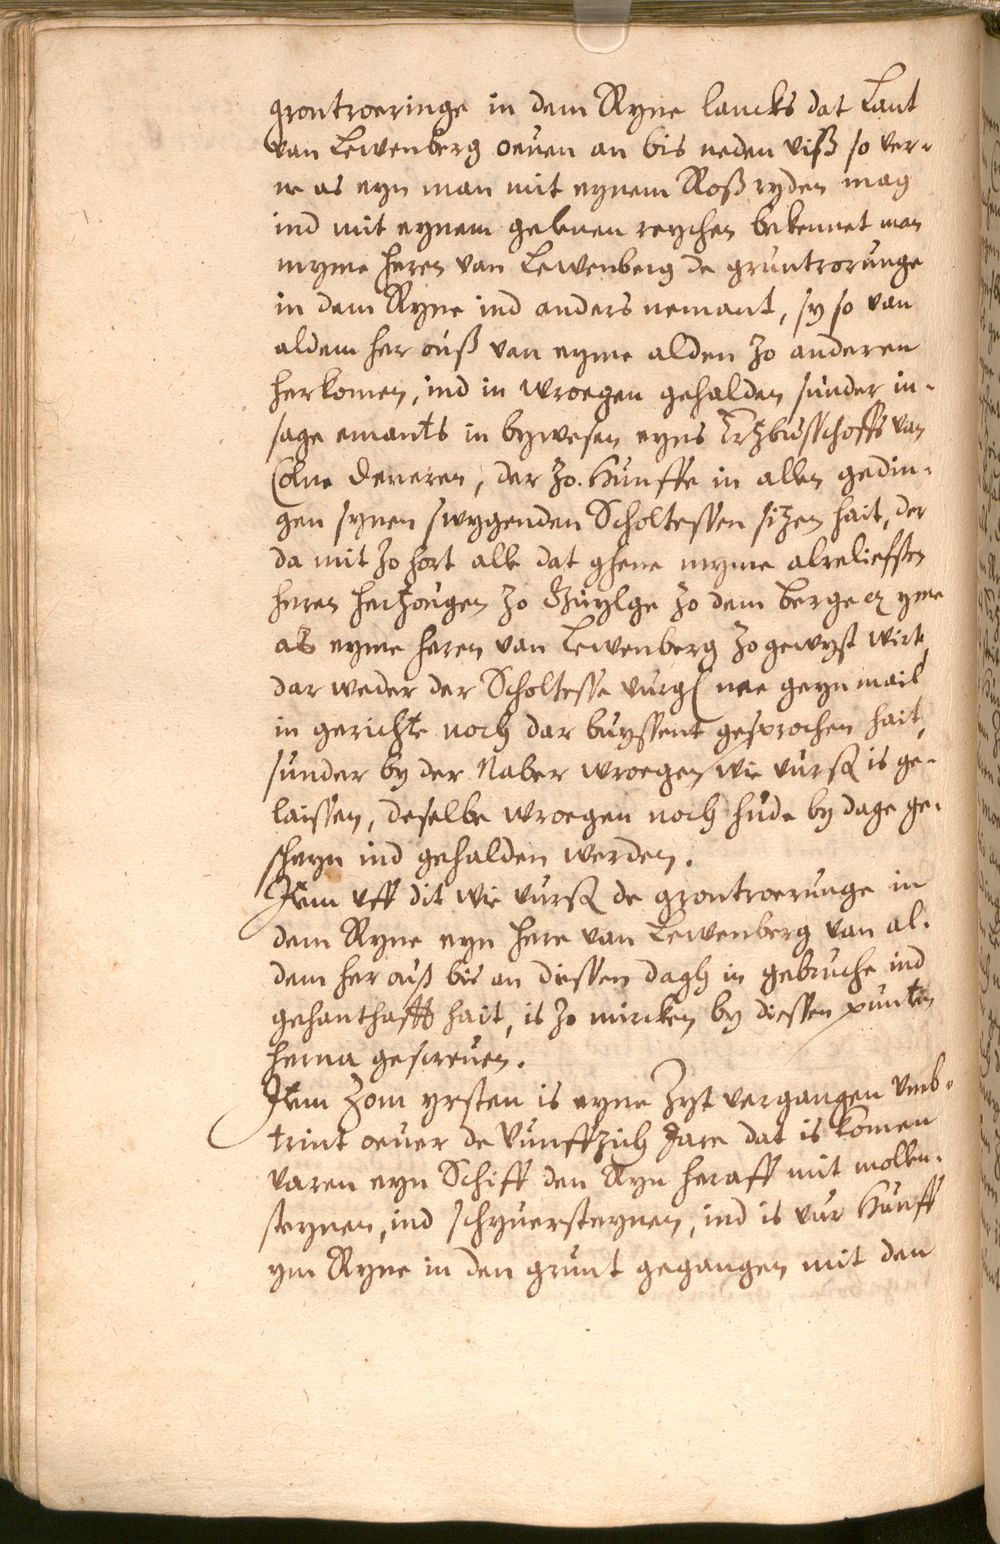 grontroeringe in dem Ryne lancks dat Lant
van Lewenberg oeuen an bis neden viß so ver-
ne as eyn man mit eynem Roß ryden mag
ind mit eynem gleuen reychen bekennet man
myme heren van Lewenberg de gruntrorunge
in dem Ryne ind anders nemant, sy so van
aldem her ouß van eyme alden zo anderen
herkomen, ind in wroegen gehalden sunder in-
sage emants in bywesen eyns Ertzbusschoffs van
Colne deneren, der zo Hunffe in allen gedin-
gen synen swygenden Scholtessen sitzen hait, der
da mit zo hort all dat ghene myme alreliefsten
heren hertzougen zo Guylge zo dem berge yme
als eyme heren van Lewenberg zo gewyst wirt,
dar weder der Scholtesse vurg nee geyn mail
in gerichte noch dar buyssent gesprochen hait,
sunder by der Naber wroegen wie vurß is ge-
laissen, deselbe wroegen noch hude by dage ge-
scheyn ind gehalden werden.
Item vff dit wie vurß de grontroerunge in
dem Ryne eyn here van Lewenberg van al-
dem her auß bis an diessen dagh in gebruche ind
gehanthafft hait, is zo mircken by diessen punten
herna gescreuen.
Item zom yrsten is eyne Zyt vergangen vmb-
trint oeuer de vunffzich Jare dat is komen
varen eyn Schiff den Ryn heraff mit mollen-
steynen, ind schyuersteynen, ind is vur Hunff
ym Ryne in den grunt gegangen mit den